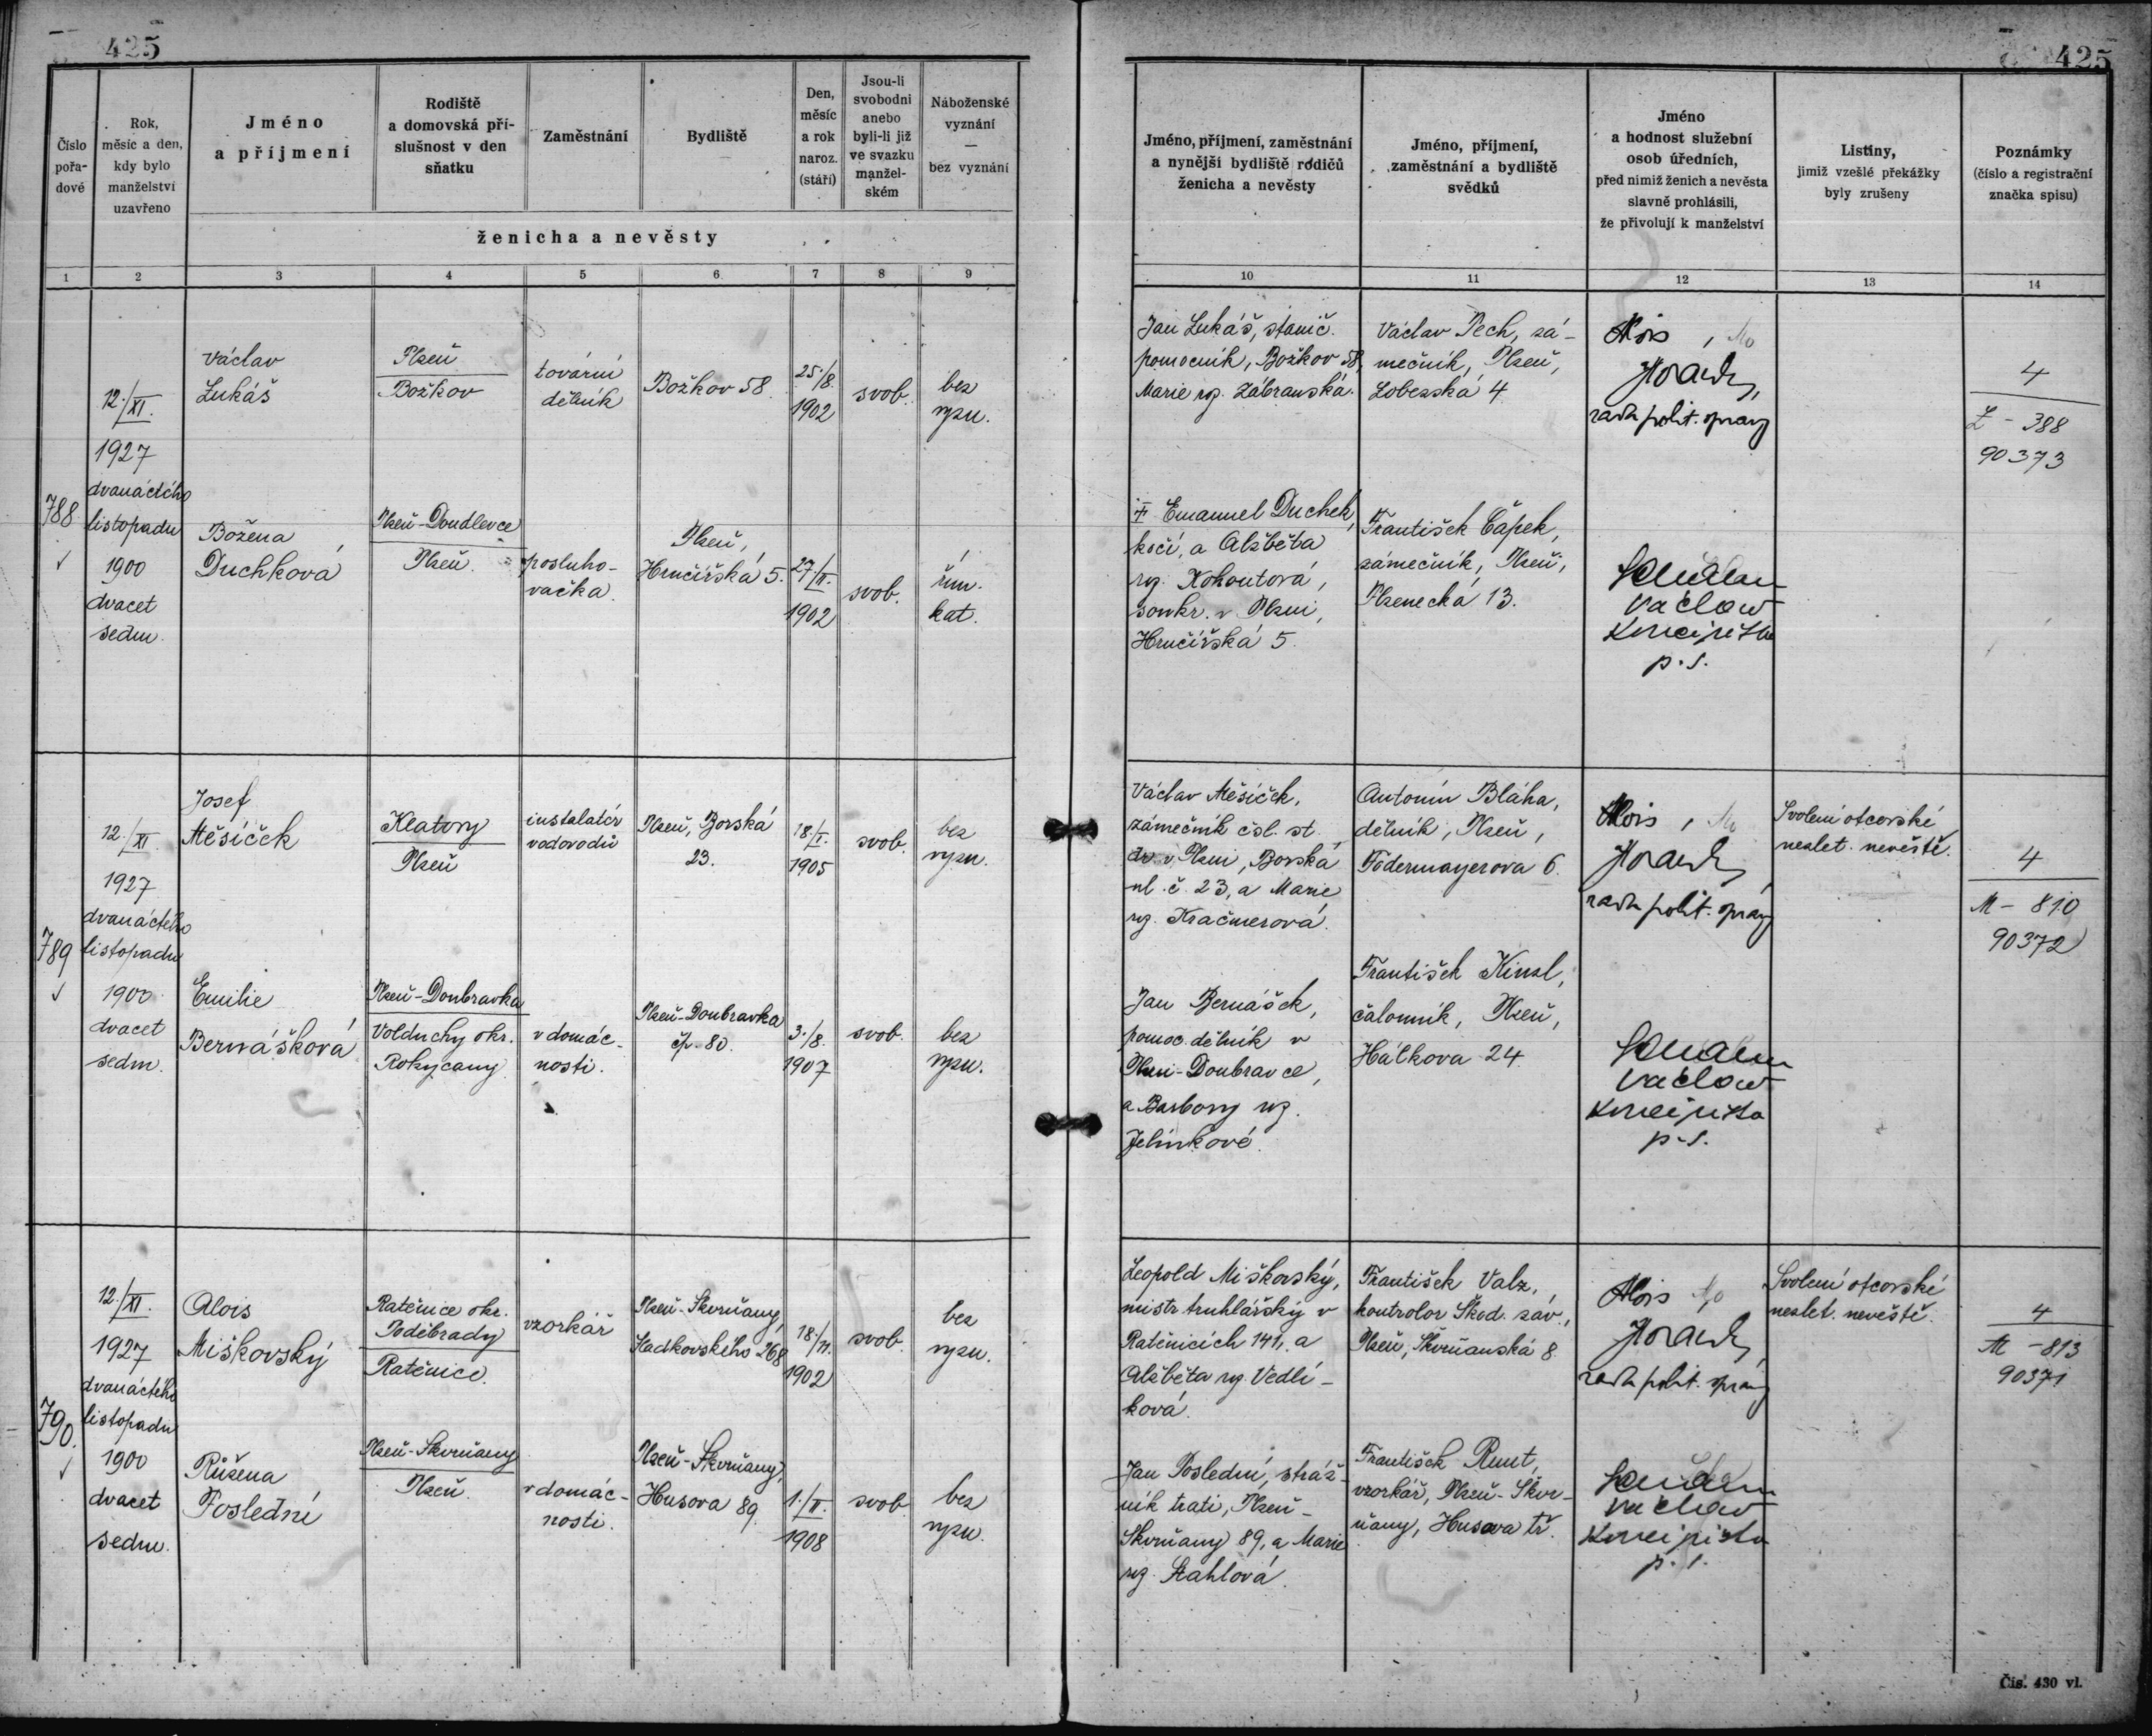 425
425
Číslo
pořa-
dové
Rok,
měsíc a den,
kdy bylo
manželství
uzavřeno
Jméno
a příjmení
Rodiště
a domovská pří-
slušnost v den
sňatku
Zaměstnání
Bydliště
Den,
měsíc
a rok
naroz.
(stáří)
Jsou-li
svobodni
anebo
byli-li již
ve svazku
manžel-
ském
Náboženské
vyznání
—
bez vyznání
ženicha a nevěsty
Jméno, příjmení, zaměstnání
a nynější bydliště rodičů
ženicha a nevěsty
Jméno, příjmení,
zaměstnání a bydliště
svědků
Jméno
a hodnost služební
osob úředních,
před nimiž ženich a nevěsta
slavně prohlásili,
že přivolují k manželství
Listiny,
jimiž vzešlé překážky
byly zrušeny
Poznámky
(číslo a registrační
značka spisu)
1 2 3 4 5 6 7 8 9
10 11 12 13 14
788
12./XI.
1927
dvanáctého
listopadu
1900
dvacet
sedm.
Václav
Lukáš
Plzeň
Božkov
tovární
dělník
Božkov 58.
25./8.
1902
svob.
bez
vyzn.
Jan Lukáš, stanič.
pomocník, Božkov 58,
Marie roz. Zábranská.
Václav Pech, zá-
mečník, Plzeň,
Lobezská 4.
Alois
rada polit. správy
4
L - 388
90373
Božena
Duchková
Plzeň-Doudlevce
Plzeň.
posluho-
vačka.
Plzeň,
Hrnčířská 5.
27./II.
1902
svob.
řím.
kat.
† Emanuel Duchek,
kočí, a Alžběta
roz. Kohoutová,
soukr. v Plzni,
Hrnčířská 5.
František Čápek,
zámečník, Plzeň,
Plzenecká 13.
Václav
koncipista
p. s.
789
12./XI.
1927
dvanáctého
listopadu
1900
dvacet
sedm.
Josef
Měsíček
Klatovy
Plzeň
instalatér
vodovodů
Plzeň, Borská
23.
18./I.
1905
svob.
bez
vyzn.
Václav Měsíček,
zámečník čsl. st.
dr. v Plzni, Borská
ul. č. 23, a Marie
roz. Kračmerová.
Antonín Bláha,
dělník, Plzeň,
Födermayerova 6.
Alois
rada polit. správy
Svolení otcovské
nezlet. nevěstě.
4
M - 810
90372
Emilie
Bernášková
Plzeň-Doubravka
Volduchy okr.
Rokycany.
v domác-
nosti.
Plzeň-Doubravka
čp. 80.
3./8.
1907
svob.
bez
vyzn.
Jan Bernášek,
pomoc. dělník v
Plzni-Doubravce,
a Barbory roz.
Jelínkové.
František Kinzl,
čalouník, Plzeň,
Hálkova 24.
Václav
koncipista
p. s.
790.
12./XI.
1927
dvanáctého
listopadu
1900
dvacet
sedm.
Alois
Miškovský
Ratěnice okr.
Poděbrady
Ratěnice.
vzorkář
Plzeň-Skvrňany,
Sladkovského 268
1902
svob.
bez
vyzn.
Leopold Miškovský,
mistr truhlářský v
Ratěnicích 141, a
Alžběta roz. Vedlí-
ková.
František Valz,
kontrolor Škod. záv.,
Plzeň, Skvrňanská 8.
Alois
rada polit. správy
Svolení otcovské
nezlet. nevěstě.
4
M - 813
90371
Růžena
Poslední
Plzeň-Skvrňany
Plzeň.
v domác-
nosti.
Plzeň-Skvrňany,
Husova 89.
1./II.
1908
svob.
bez
vyzn.
Jan Poslední, stráž-
ník trati, Plzeň-
Skvrňany 89, a Marie
roz. Stahlová.
František Runt,
vzorkář, Plzeň-Skvr-
ňany, Husova tř.
Václav
koncipista
p. s.
Čís. 430 vl.